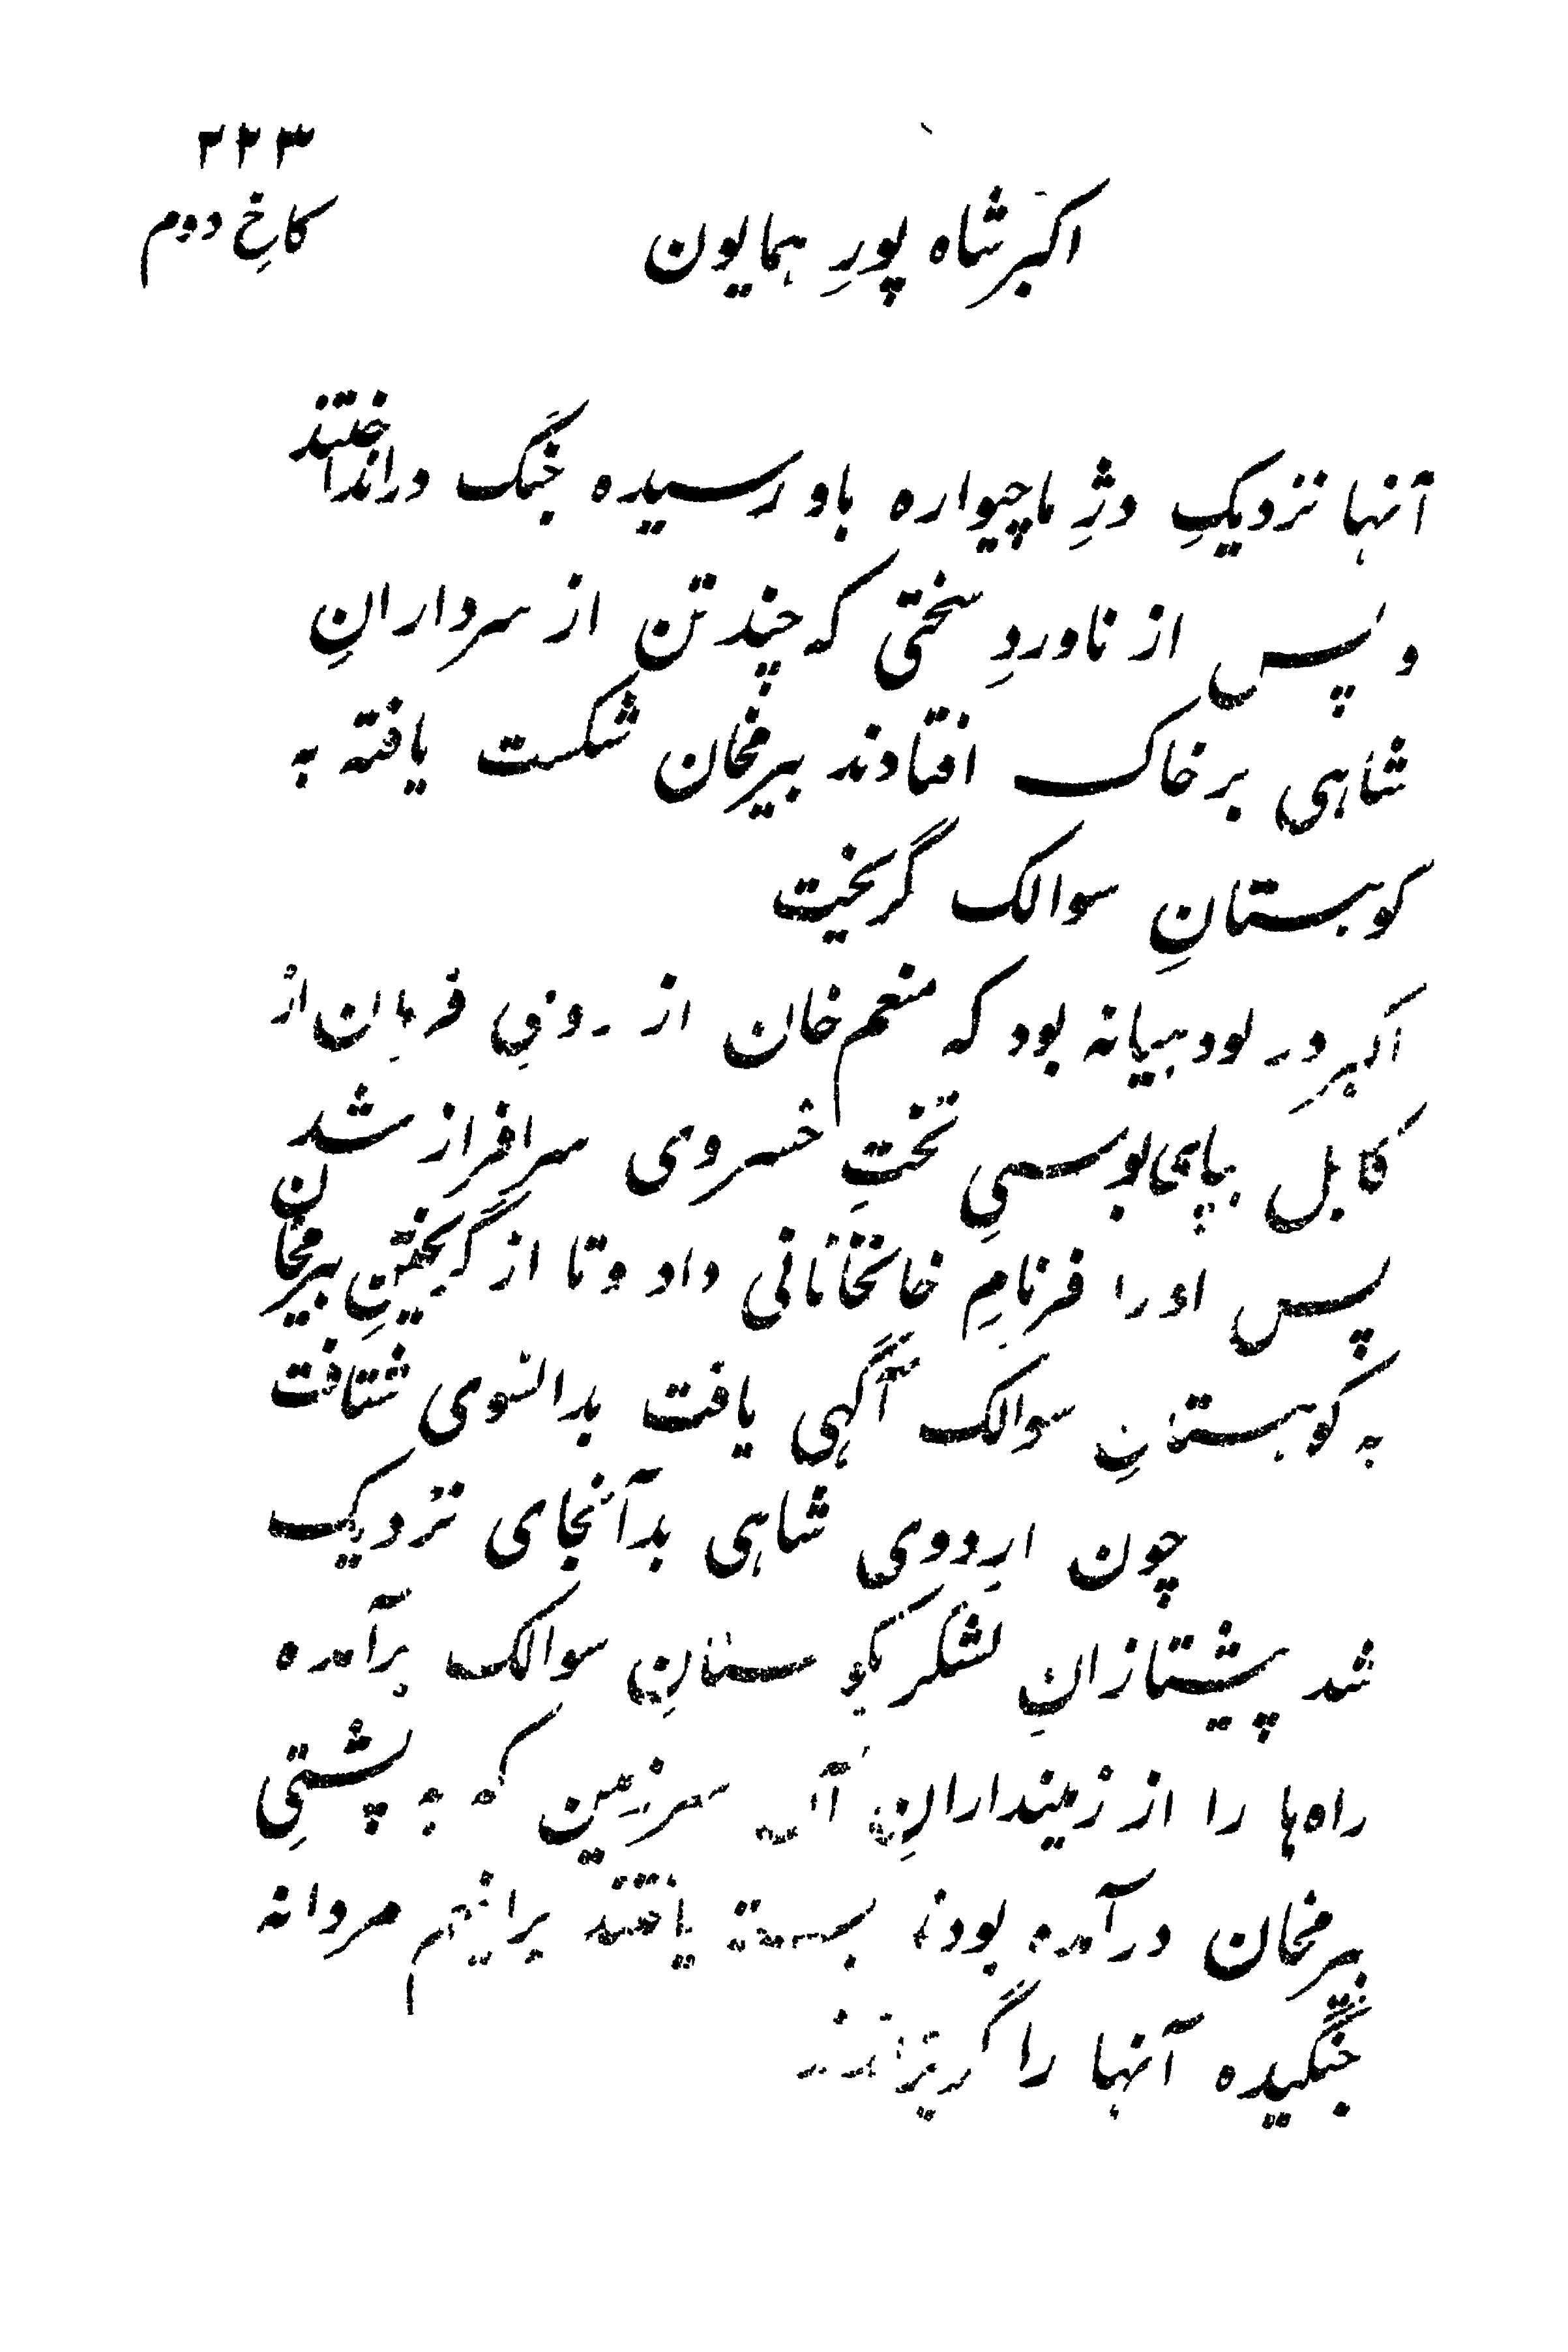 ۲۲۳
کاخِ دوم
اکبر شاه پورِ همایون
آنها نزدیکِ دژِ ماچیواره باو رسیده جنگ درانداختند
و پس از ناوردِ سختی که چند تن از سردارانِ
شاهی بر خاک افتادند بیرمخان شکست یافته به
کوهستانِ سوالک گریخت
اکبر در لودهیانه بود که منعم خان از روی فرمان از
کابل بپای بوسیِ تختِ خسروی سرافراز شد
پس او را فرنامِ خانخانانی داد و تا از گریختنِ بیرمخان
به کوهستانِ سوالک آگهی یافت بدانسوی شتافت
چون اردوی شاهی بدآنجای نزدیک
شد پیشتازانِ لشکر بکوهستانِ سوالک برآمده
راه‌ها را از زمیندارانِ آن سرزمین که به پشتیِ
بیرمخان درآمده بودند بسته یافتند براینهم مردانه
جنگیده آنها را گریزاندند